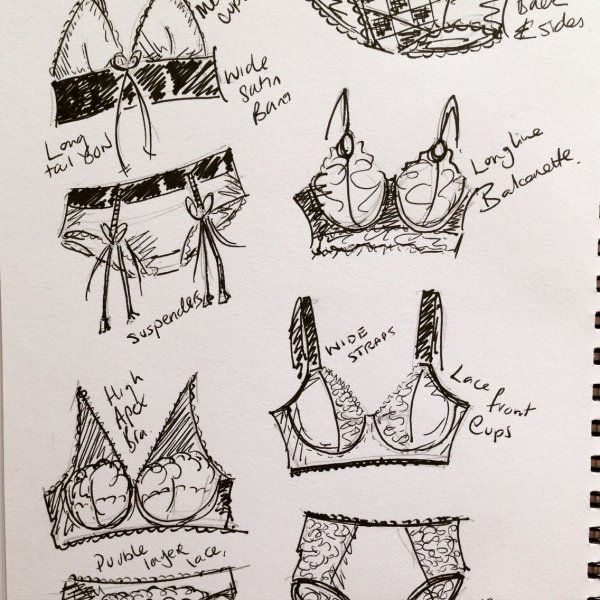 cups
Back
& sides
Wide
Satin
Long
tail BOW
Longline
Balconette.
suspenders
WIDE
STRAPS
High
Apex
Bra
Lace front
Cups
Double
layer lace.